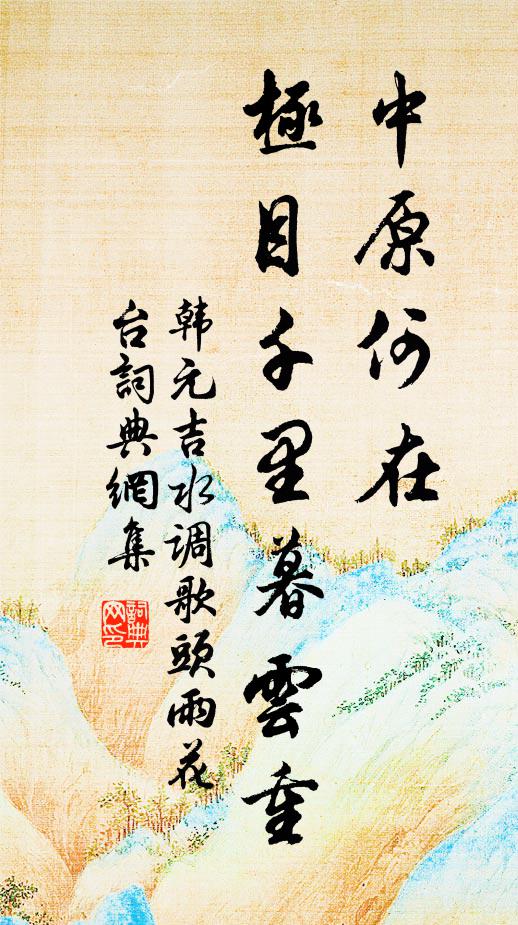 中原何在
極目千里暮雲重
韩元吉水调歌頭雨花
台詞典網集
詞典
网印